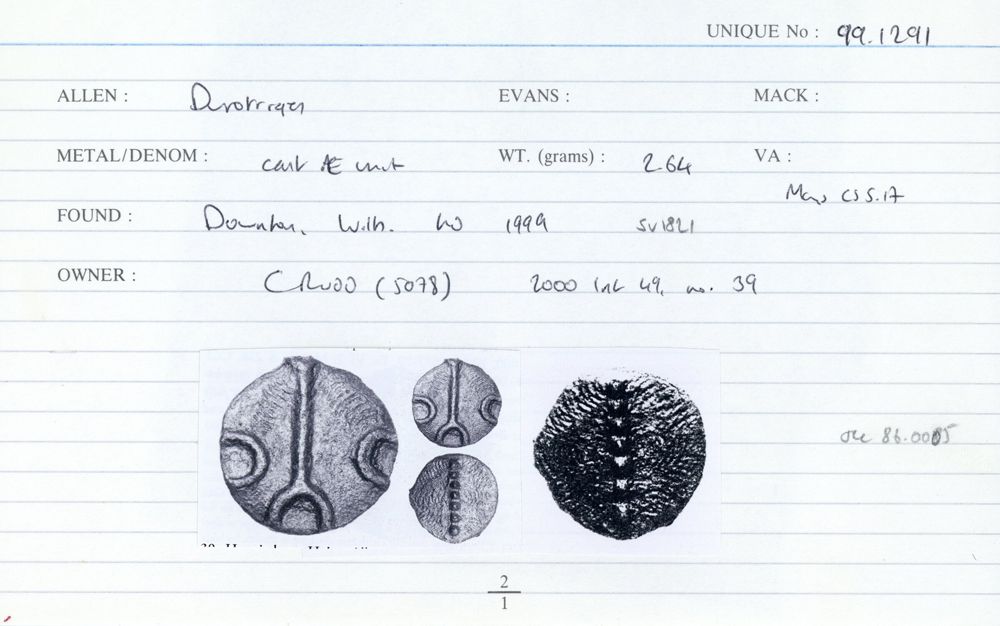 UNIQUE No : 99.1291
ALLEN : Durotriges EVANS : MACK :
METAL/DENOM : cast Æ unit WT. (grams) : 2.64 VA :
Mays
FOUND : Downton, Wilts. 1999 SV1821
OWNER : CRudd (5078) 2000 list 49, no. 39
86.0005
2
1